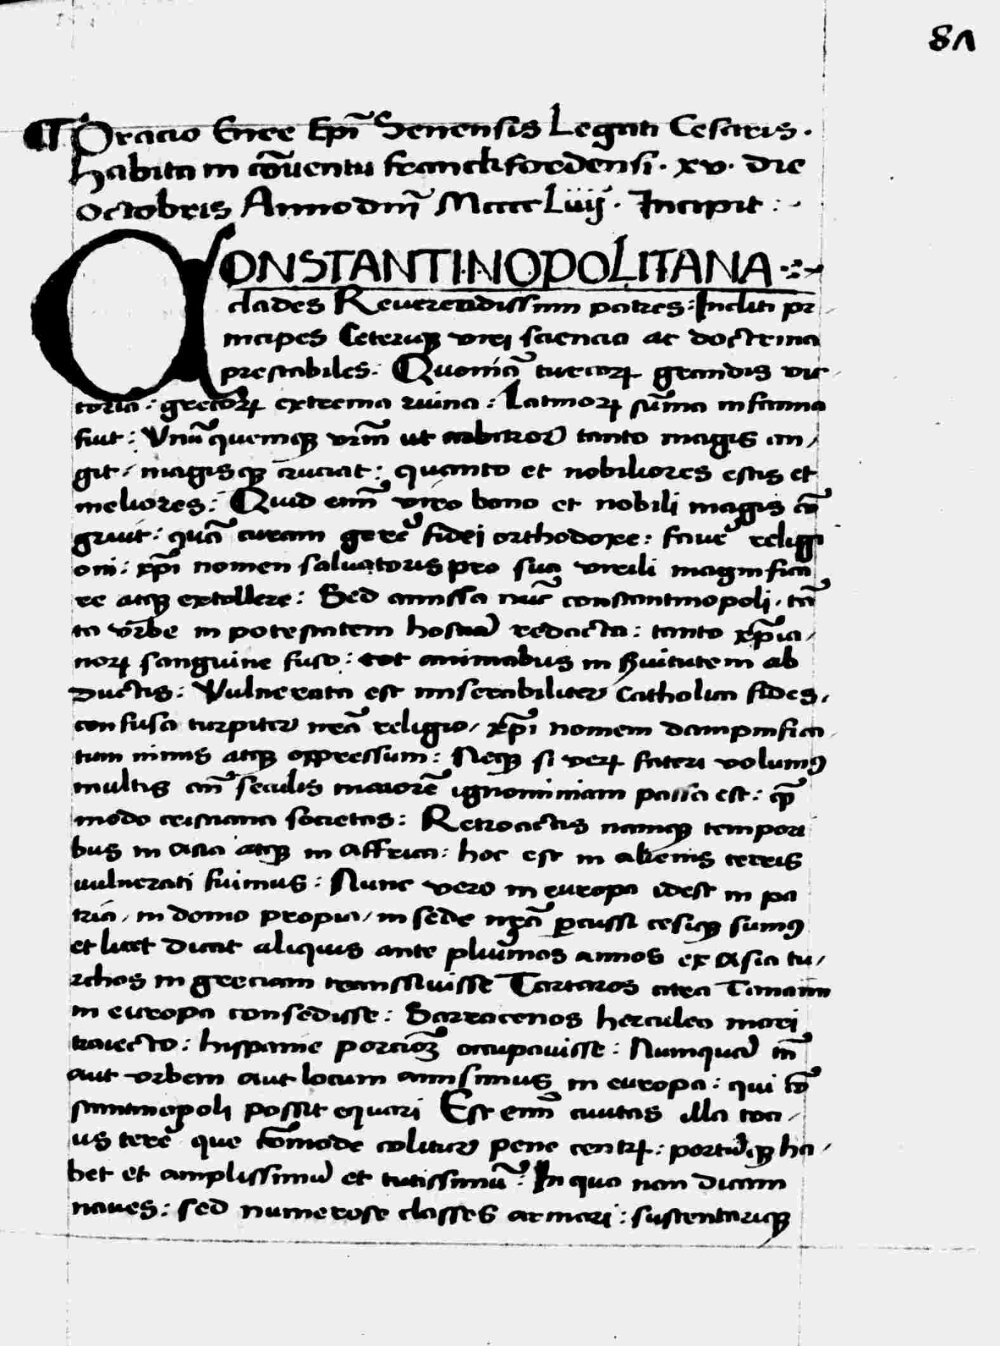 81
Oracio Enee Ep̄i Senensis Legati Cesaris·
habita in cōuentu franckfordensi· xv· die
Octobris Anno dn̄i Mcccc Liiij· Incipit :·
CONSTANTINOPOLITANA
clades Reuerendissimi patres: Incliti pri
ncipes Ceteriqꝫ viri sciencia ac doctrina
prestabiles· Quoniā turcoꝝ grandis vic
toria: grecoꝝ extrema ruina: Latinoꝝ sūma infamia
fiut: Vnūquemqꝫ vrm̄ ut arbitror tanto magis an/
git/ magisqꝫ cruciat: quanto et nobiliores estis et
meliores: Quid enī viro bono et nobili magis cō
gruit: quā curam gerē fidei orthodoxe: fauē religi
oni: xp̄i nomen saluatoris pro sua virili magnifica
re atqꝫ extollere: Sed amissa nūc constantinopoli· tā
ta vrbe in potestatem hostiū redacta: tanto xp̄ia/
noꝝ sanguine fuso: tot animabus in ſuitutem ab
ductis: Vulnerata est miserabiliter Catholica fides·
confusa turpiter nrā religio/ xp̄i nomem dampnifica
tum nimis atqꝫ oppressum: Neqꝫ si veꝝ fateri volumꝰ
multis an̄ seculis maiorē ignominiam passa est: qꝫ
modo cristiana societas: Retroactis namqꝫ tempori
bus in Asia atqꝫ in Affrica: hoc est in alienis terris
vulnerati fuimus: Nunc vero in europa idest in pa
tria/ in domo propia/ in sede nrā ꝑcussi cesiqꝫ sumꝰ
et licet dicat aliquis ante plurimos annos ex Asia tu/
rchos in greciam transsiuisse Tartaros citra Tanaim
in europa consedisse: Sarracenos herculeo mari
traiecto: hispanie porcionē occupauisse: Numquā tn̄
aut vrbem aut locum amisimus in europa: qui cō
stantinopoli possit equari Est enī ciuitas illa toci/
us terrē que cōmode colitur pene centrꝝ: portūqꝫ ha/
bet et amplissimū et tutissimū: In quo non dicam
naues: sed numerose classes armari: sustentariqꝫ